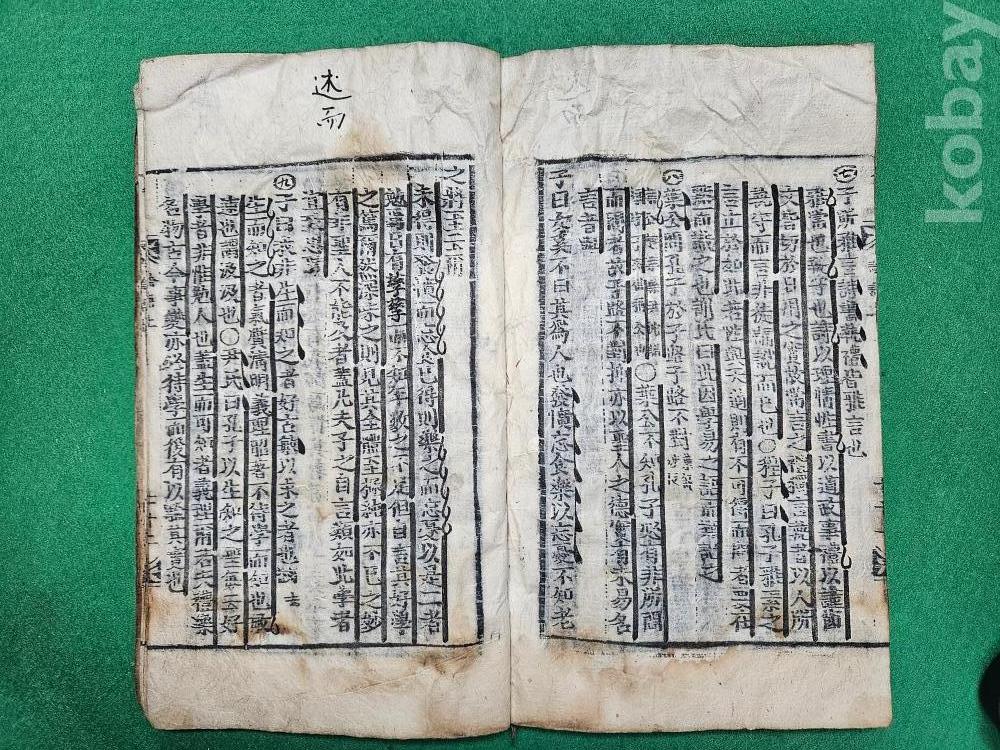 七
子所雅言詩書執禮皆雅言也
雅常也執守也詩以理情性書以道政事禮以謹節
文皆切於日用之實故常言之禮獨言執者以人所
執守而言非徒誦說而已也○程子曰孔子雅素之
言止於如此若性與天道則有不可得而聞者要在
默而識之也謝氏曰此因學易之語而類記之
八
葉公問孔子於子路子路不對
○葉公不知孔子必有非所問
而問者故子路不對抑亦以聖人之德實有未易名
言者與
子曰女奚不曰其爲人也發憤忘食樂以忘憂不知老
述而
之將至云爾
未得則發憤而忘食已得則樂之而忘憂以是二者
俛焉日有孳孳而不知年數之不足但自言其好學
之篤爾然深味之則見其全體至極純亦不已之妙
有非聖人不能及者蓋凡夫子之自言類如此學者
宜致思焉
九
子曰我非生而知之者好古敏以求之者也
生而知之者氣質淸明義理昭著不待學而知也敏
速也謂汲汲也○尹氏曰孔子以生知之聖每云好
學者非惟勉人也蓋生而可知者義理爾若夫禮樂
名物古今事變亦必待學而後有以驗其實也
kobay